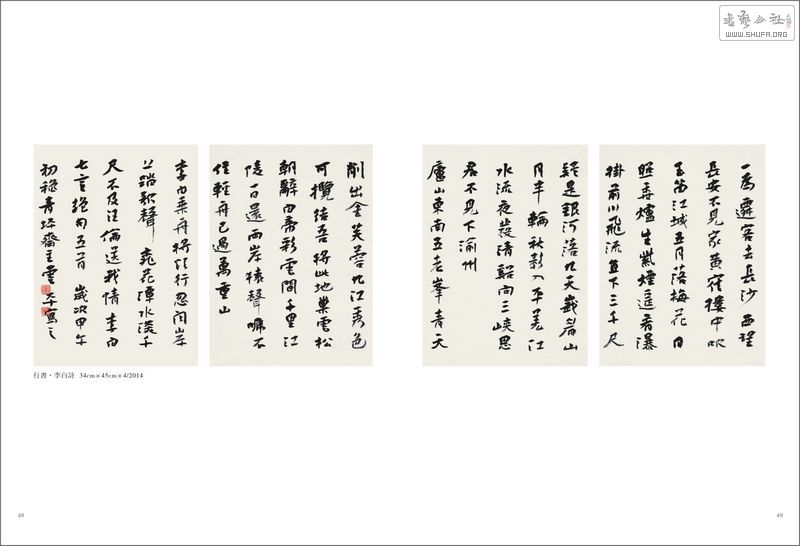 書藝公社
WWW.SHUFA.ORG
一為遷客去長沙 西望
長安不見家黃鶴樓中吹
玉笛江城五月落梅花 日
照香爐生紫煙遙看瀑
掛前川飛流直下三千尺
疑是銀河落九天 峨眉山
月半輪秋影入平羌江
水流夜發清谿向三峽思
君不見下渝州
廬山東南五老峯青天
削出金芙蓉九江秀色
可攬結吾將此地巢雲松
朝辭白帝彩雲間千里江
陵一日還兩岸猿聲啼不
住輕舟已過萬重山
李白乘舟將欲行忽聞岸
上踏歌聲 桃花潭水深千
尺不及汪倫送我情 李白
七言絕句五首 歲次甲午
初 青 齋主雲平寫之
行書·李白詩 34cm×45cm×4/2014
48
49